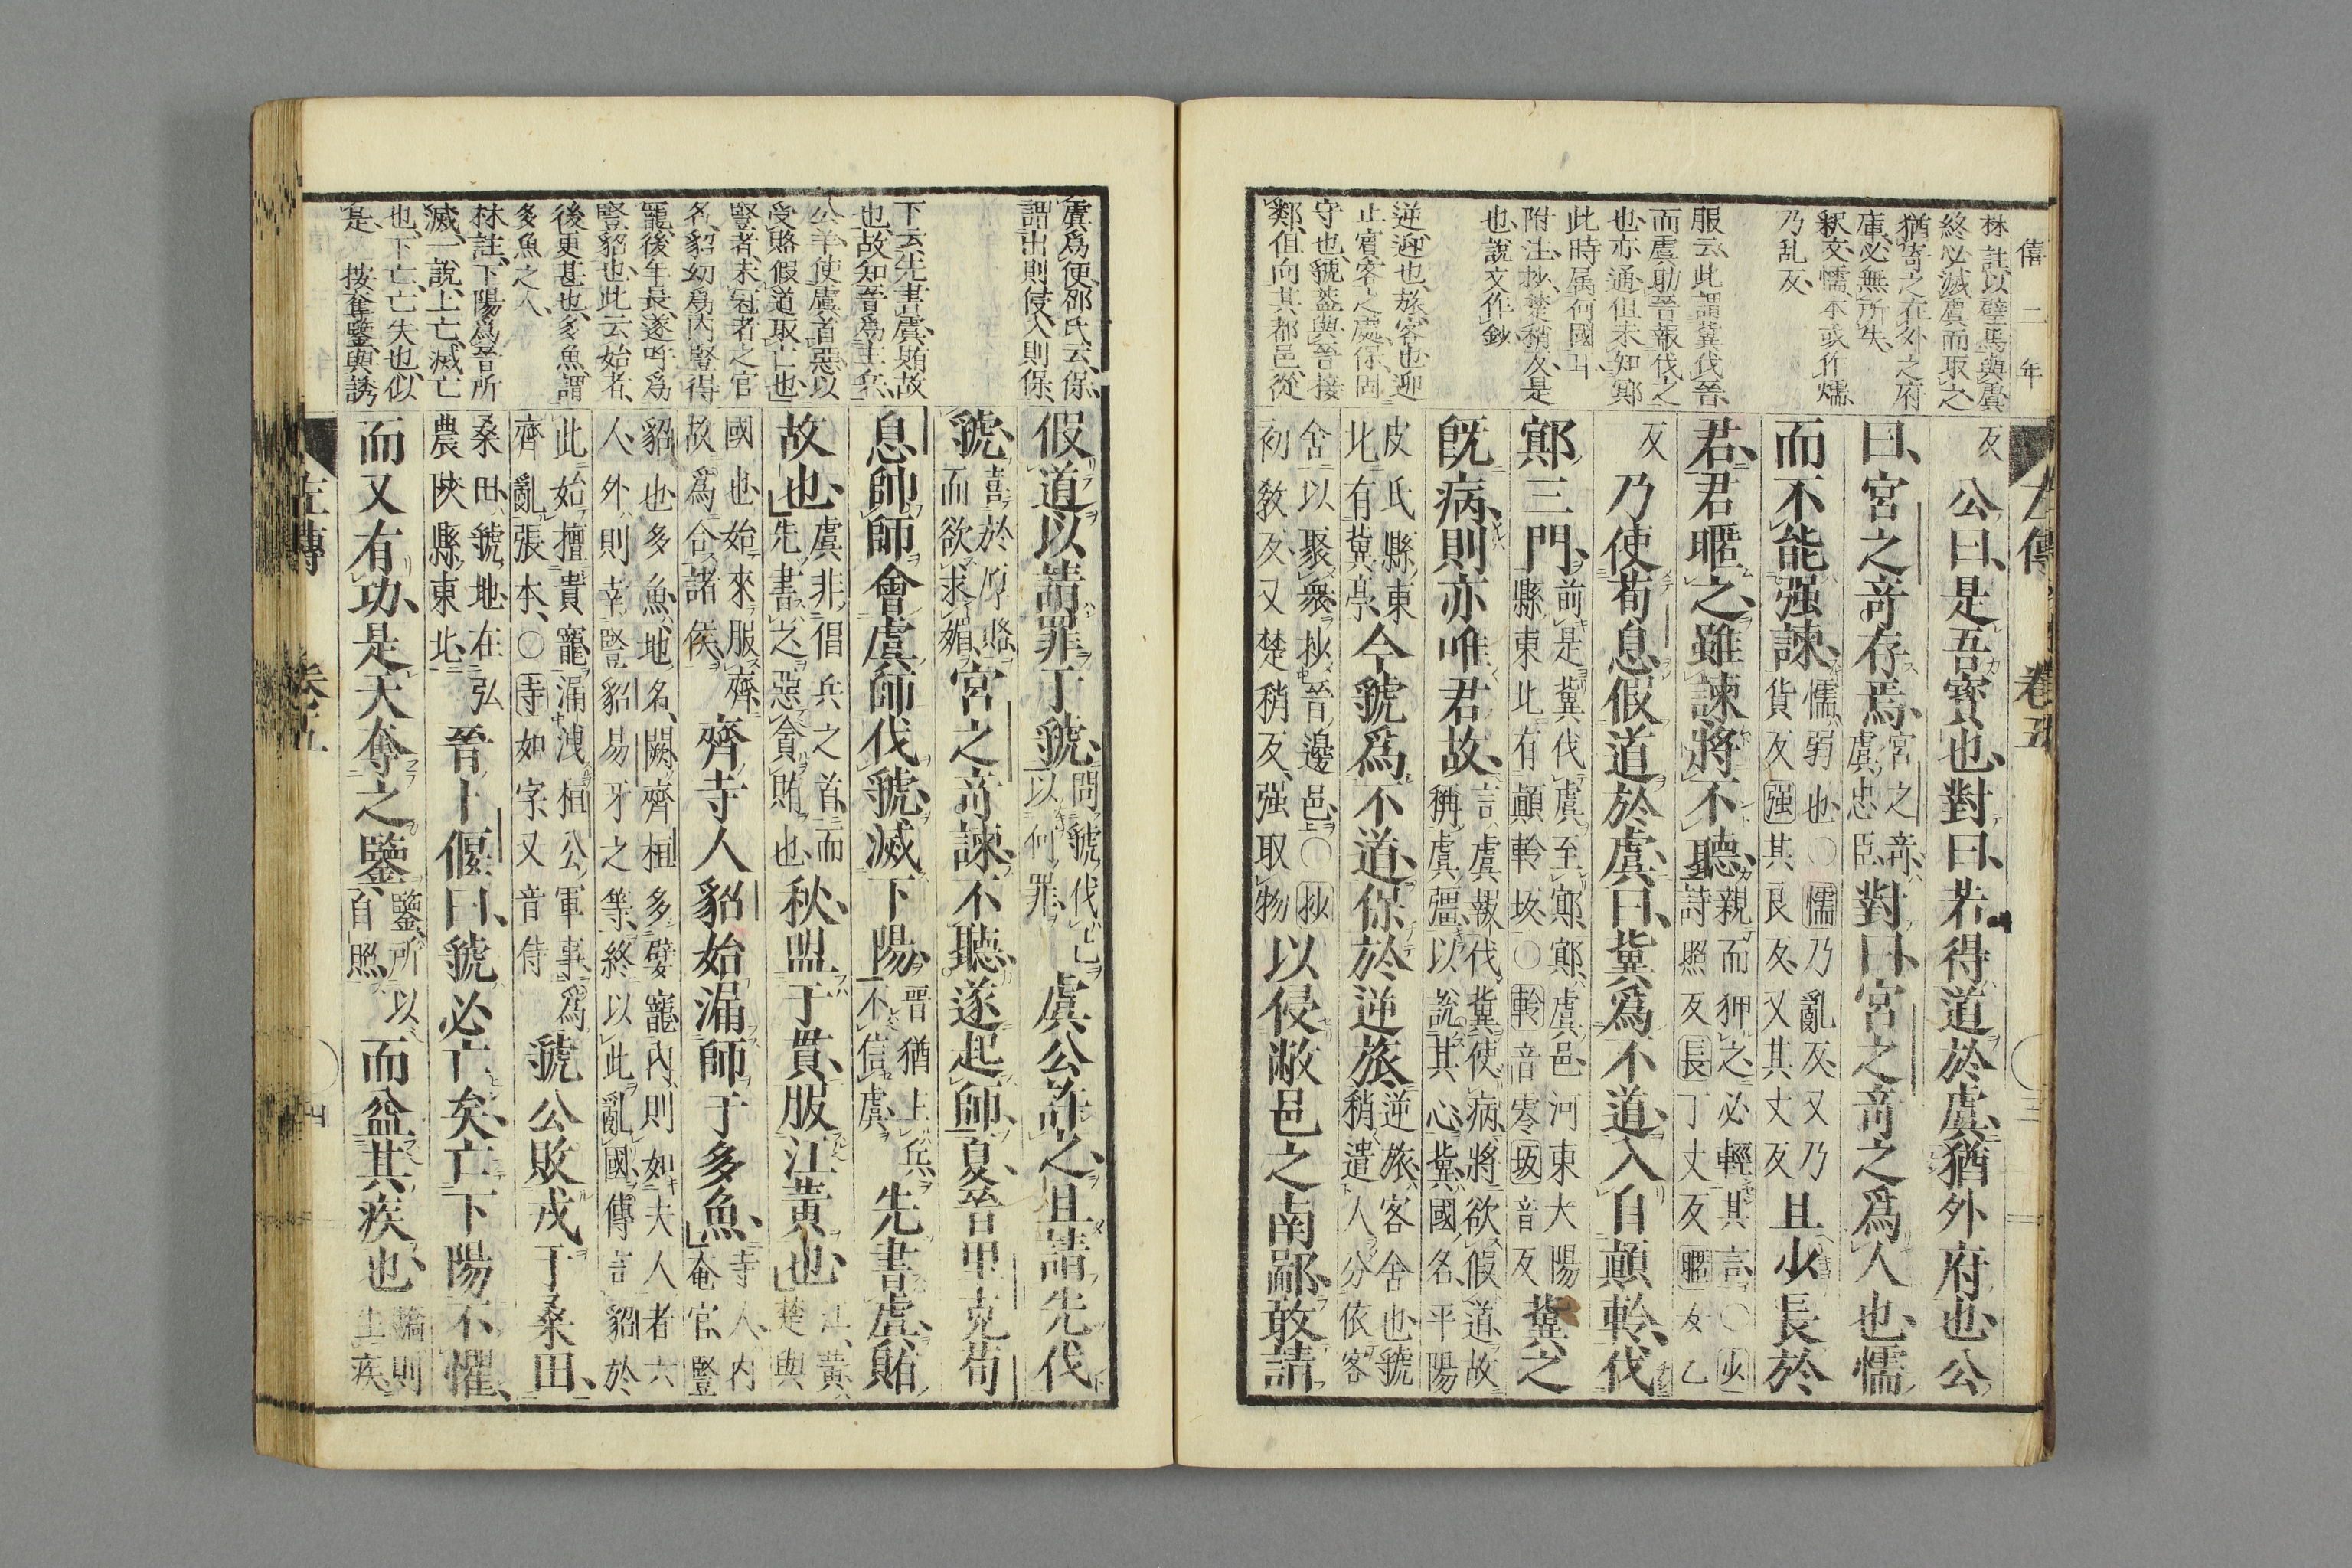 僖二年
林註以璧馬與虞
終必滅虞而取之
猶寄之在外之府
庫必無所失
釈文懦本或作燸
乃乱反
服云此謂冀伐晉
而虞助晉報伐之
也亦通但未知鄍
此時属何國耳
附注抄楚稍反是
也說文作鈔
逆迎也旅客也迎
止賓客之處保固
守也虢蓋與晉接
鄰俱向其都邑從
左傳 卷五 三
反 公曰是吾寳也對曰若得道於虞猶外府也公
曰宮之竒存焉
宮之竒
虞忠臣
對曰宮之竒之爲人也懦
而不能强諫
懦弱也〇懦乃亂反又乃
貨反强其良反又其丈反
且少長於
君君暱之雖諫將不聽
親而狎之必輕其言〇少
詩照反長丁丈反暱女乙
反 乃使荀息假道於虞曰冀爲不道入自顚軨伐
鄍三門
前是冀伐虞至鄍鄍虞邑河東大陽
縣東北有顚軨坂〇軨音零坂音反
冀之
旣病則亦唯君故
言虞報伐冀使病將欲假道故
稱虞彊以說其心冀國名平陽
皮氏縣東
北有冀亭
今虢爲不道保於逆旅
逆旅客舍也虢
稍遣人分依客
舍以聚衆抄晉邊邑〇抄
初敎反又楚稍反强取物
以侵敝邑之南鄙敢請
虞爲使邵氏云保
謂出則侵入則保
下云先書虞賄故
也故知晉爲主兵
公羊使虞首惡以
受賂假道取亡也
豎者未冠者之官
名貂幼爲內豎得
寵後年長遂呼爲
豎貂也此云始者
後更甚也多魚謂
多魚之人
林註下陽爲晉所
滅一說上亡滅亡
也下亡亡失也似
是 按奪鑒與誘
假道以請罪于虢
問虢伐己
以何罪
虞公許之且請先伐
虢
喜於厚賂
而欲求媚
宮之竒諫不聽遂起師夏晉里克荀
息帥師會虞師伐虢滅下陽
晉猶主兵
不信虞
先書虞賄
故也
虞非倡兵之首而
先書之惡貪賄也
秋盟于貫服江黃也
江黃
楚與
國也始來服齊
故爲合諸侯
齊寺人貂始漏師于多魚
寺人內
奄官豎
貂也多魚地名闕齊桓多嬖寵內則如夫人者六
人外則幸豎貂易牙之等終以此亂國傳言貂於
此始擅貴寵漏洩桓公軍事爲
齊亂張本〇寺如字又音侍
虢公敗戎于桑田
桑田虢地在弘
農陝縣東北
晉卜偃曰虢必亡矣亡下陽不懼
而又有功是天奪之鑒
鑒所以
自照
而益其疾也
驕則
生疾
左傳 卷五 四